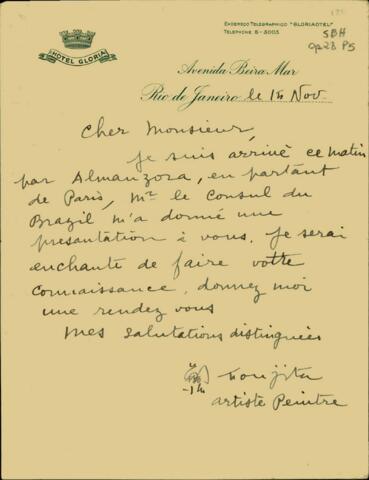 ENDEREÇO TELEGRAPHICO "GLORIAOTEL"
TELEPHONE 5-3003
SBH
Cp28 P5
HOTEL GLORIA
Avenida Beira Mar
Rio de Janeiro le 18 Nov.
Cher Monsieur,
Je suis arrivé ce matin
par Almanzora, en partant
de Paris, Mr le Consul du
Brazil m'a donné une
presantation à vous. Je serai
enchanté de faire votte
connaissance, donnez moi
une rendez vous
Mes salutations distinguées
Foujita
artiste Peintre